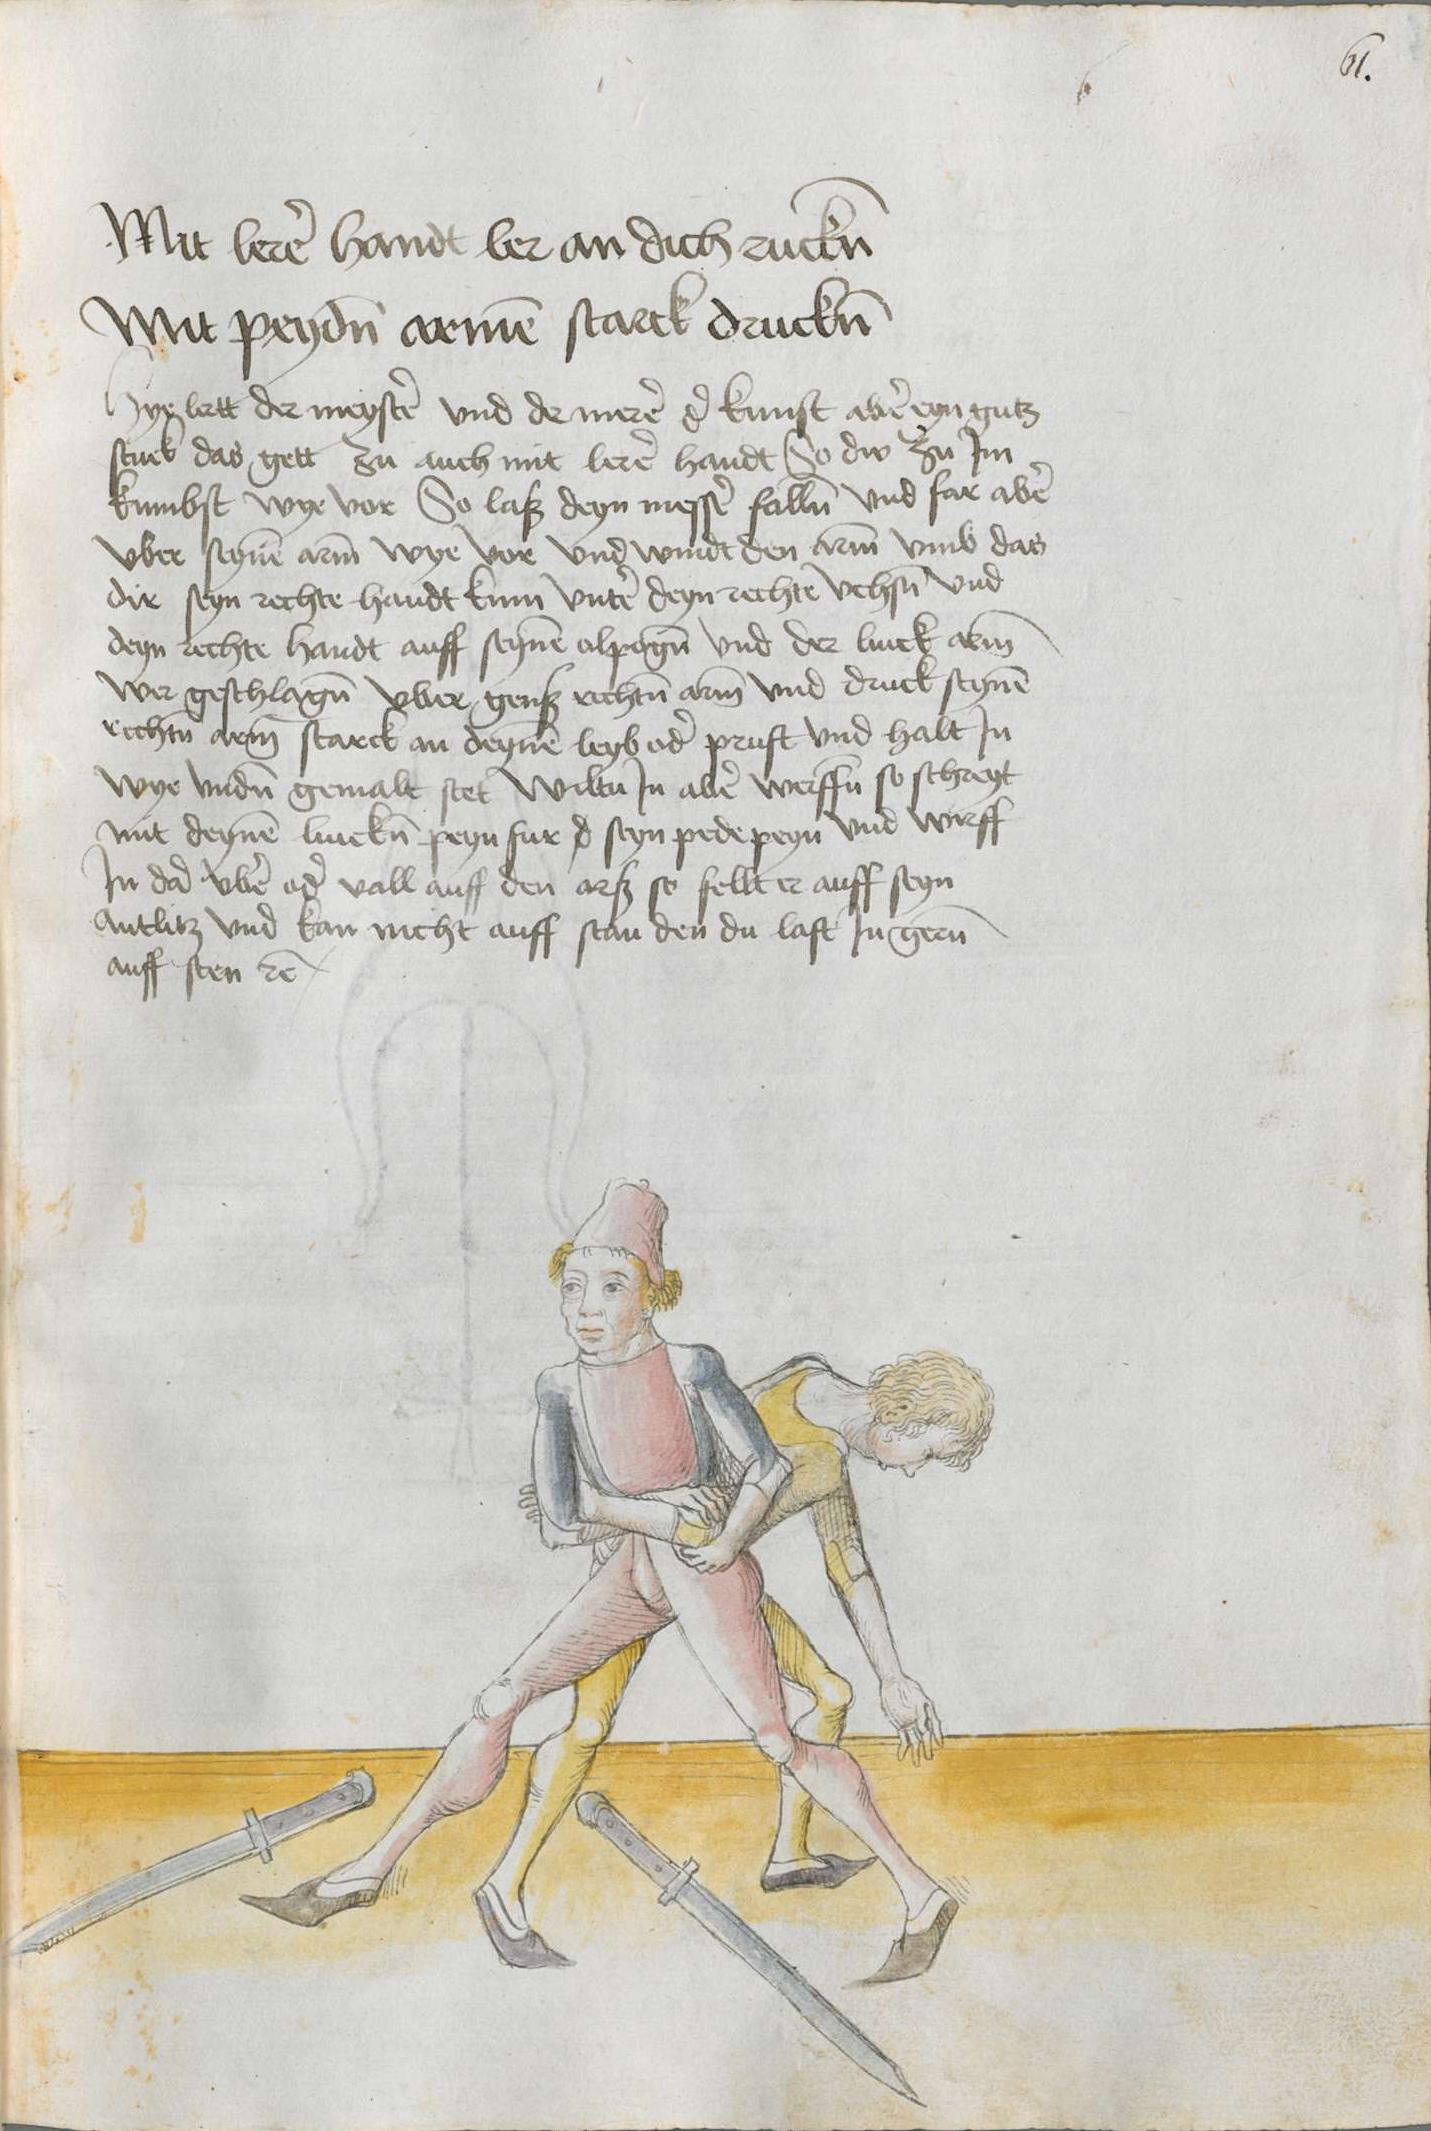 61.
Mit lerẽ handt ler an dich ruckñ
Mit peydñ armẽ starck druckñ
Hye lertt der meystẽ und der merẽ d̾ kunst abẽ eyn gutz
stuck das gett zu auch mit lerẽ handt So dw zu Im
kumbst wye vor So laß deyn messẽ fallñ vnd far abẽ
vber seynẽ arm̃ wye vor vnd windt den arm̃ vmb das
dir seyn rechte handt kum vntẽ deyn rechte vchsñ vnd
deyn rechte handt auff seynẽ elpogñ vnd der linck arm̃
wer geschlagñ vber genß rechtñ arm̃ vnd druck seynẽ
rechtñ arm̃ starck an deynẽ leyb od̾ prust vnd halt In
wye vndñ gemalt stet Wiltu In abẽ werffñ so schreyt
mit deynẽ linckñ peyn fur seyn pede peyn vnd wirff
In vbẽ od̾ vall auff den arß so fellt er auff seyn
antlitz vnd kan nicht auff stan den du last In gerñ
auff sten